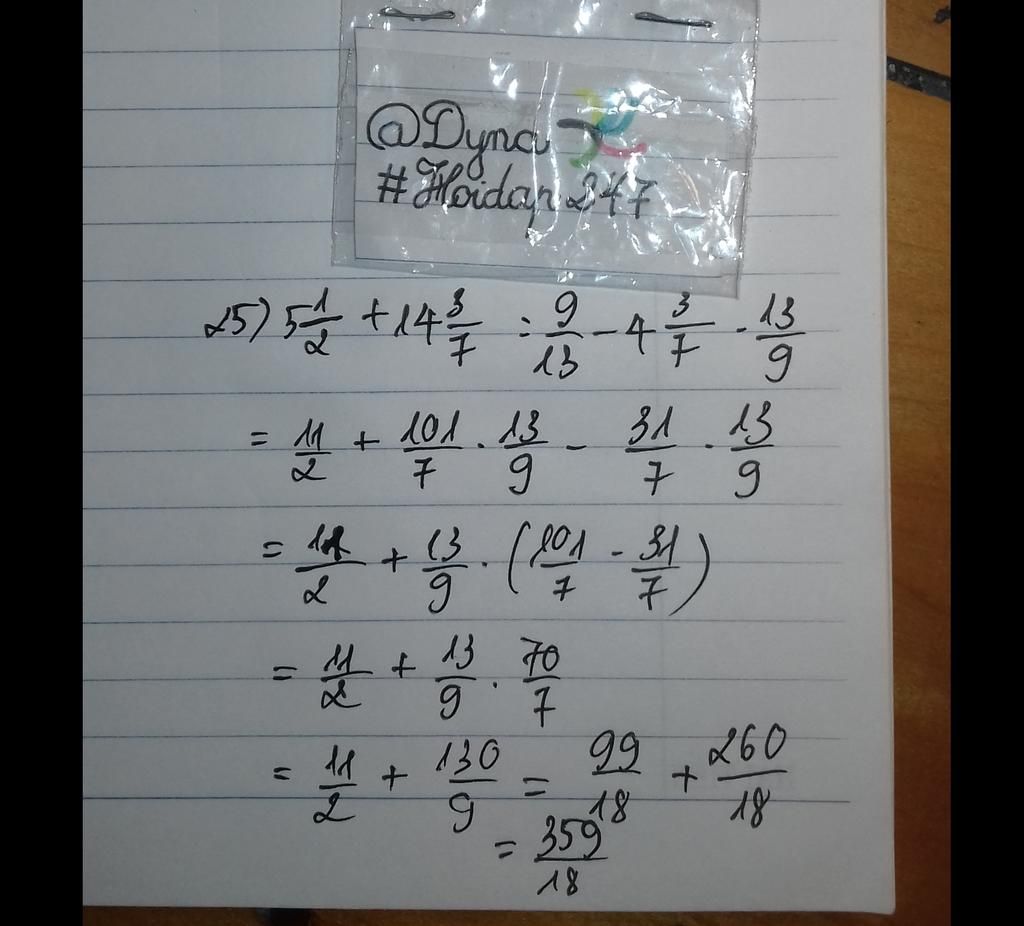 @Dyna
#Hoidap247
25) 5 1/2 + 14 3/7 : 9/13 - 4 3/7 . 13/9
= 11/2 + 101/7 . 13/9 - 31/7 . 13/9
= 11/2 + 13/9 . (101/7 - 31/7)
= 11/2 + 13/9 . 70/7
= 11/2 + 130/9 = 99/18 + 260/18
= 359/18